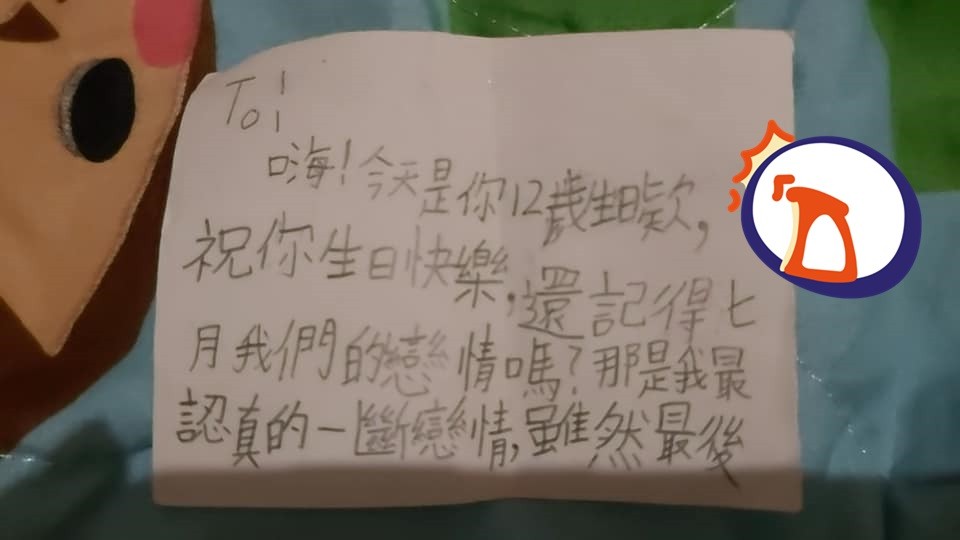 To:
嗨!今天是你12歲生日欸,
祝你生日快樂,還記得七
月我們的戀情嗎?那是我最
認真的一斷戀情,雖然最後